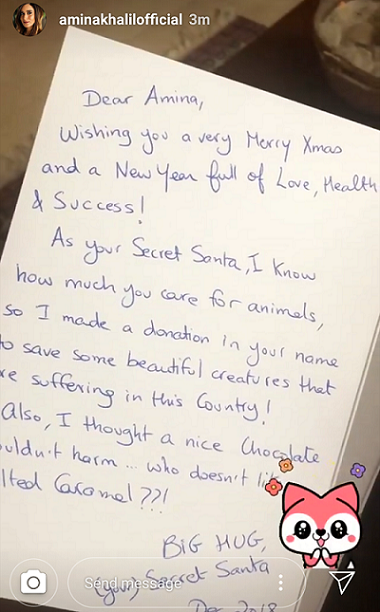 aminakhalilofficial 3m
Dear Amina,
Wishing you a very Merry Xmas
and a New Year full of Love, Health
& Success!
As your Secret Santa, I know
how much you care for animals,
so I made a donation in your name
to save some beautiful creatures that
re suffering in this Country!
Also, I thought a nice Chocolate
ouldn't harm... who doesn't li
lted Caramel ??!
BIG HUG,
your Secret Santa
Dec 2018
Send message